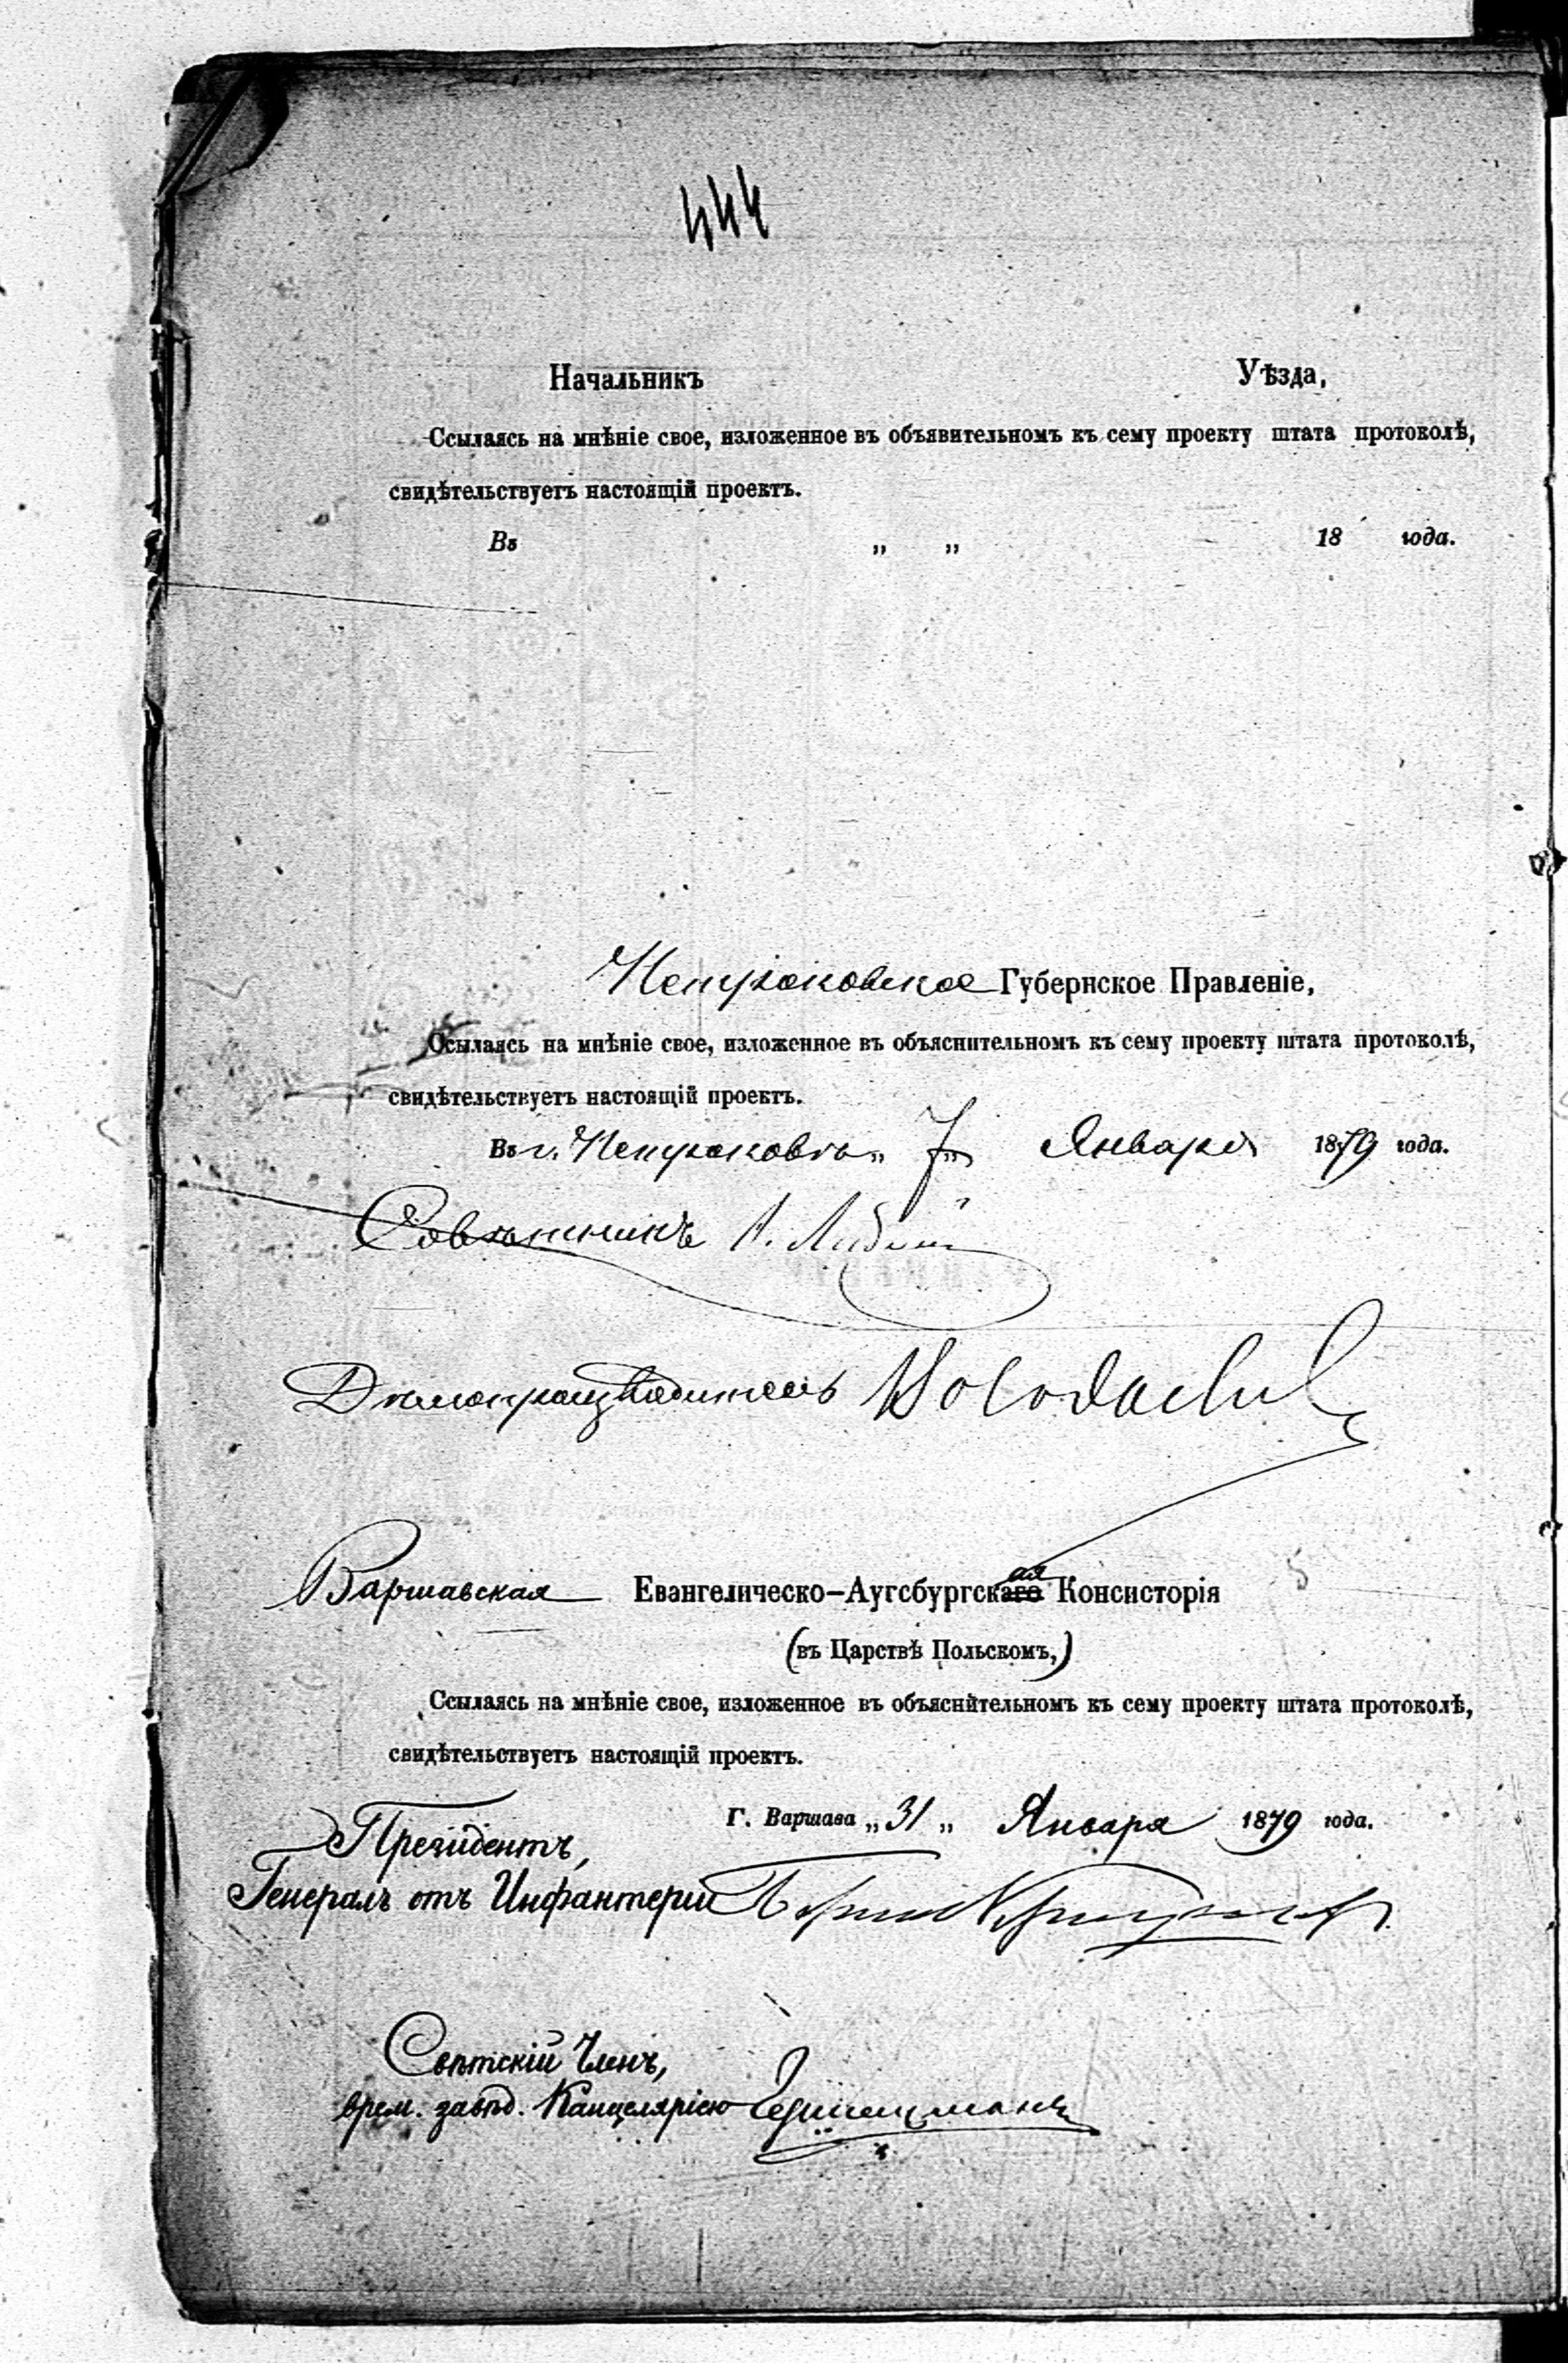 444
Начальникъ Уѣзда,
Ссылаясь на мнѣніе свое, изложенное въ объявительномъ къ сему проекту штата протоколѣ,
свидѣтельствуетъ настоящій проектъ.
Въ „ „ 18 года.
Петроковское Губернское Правленіе,
Ссылаясь на мнѣніе свое, изложенное въ объяснительномъ къ сему проекту штата протоколѣ,
свидѣтельствуетъ настоящій проектъ.
Въ г. Петроковѣ „ 7 „ Января 1879 года.
Совѣтникъ
Дѣлопроизводитель
Варшавская Евангелическо-Аугсбургская Консисторія
(въ Царствѣ Польскомъ,)
Ссылаясь на мнѣніе свое, изложенное въ объяснительномъ къ сему проекту штата протоколѣ,
свидѣтельствуетъ настоящій проектъ.
Г. Варшава „ 31 „ Января 1879 года.
Президентъ,
Генералъ отъ Инфантеріи
Свѣтскій Членъ,
врем. завѣд. Канцеляріею